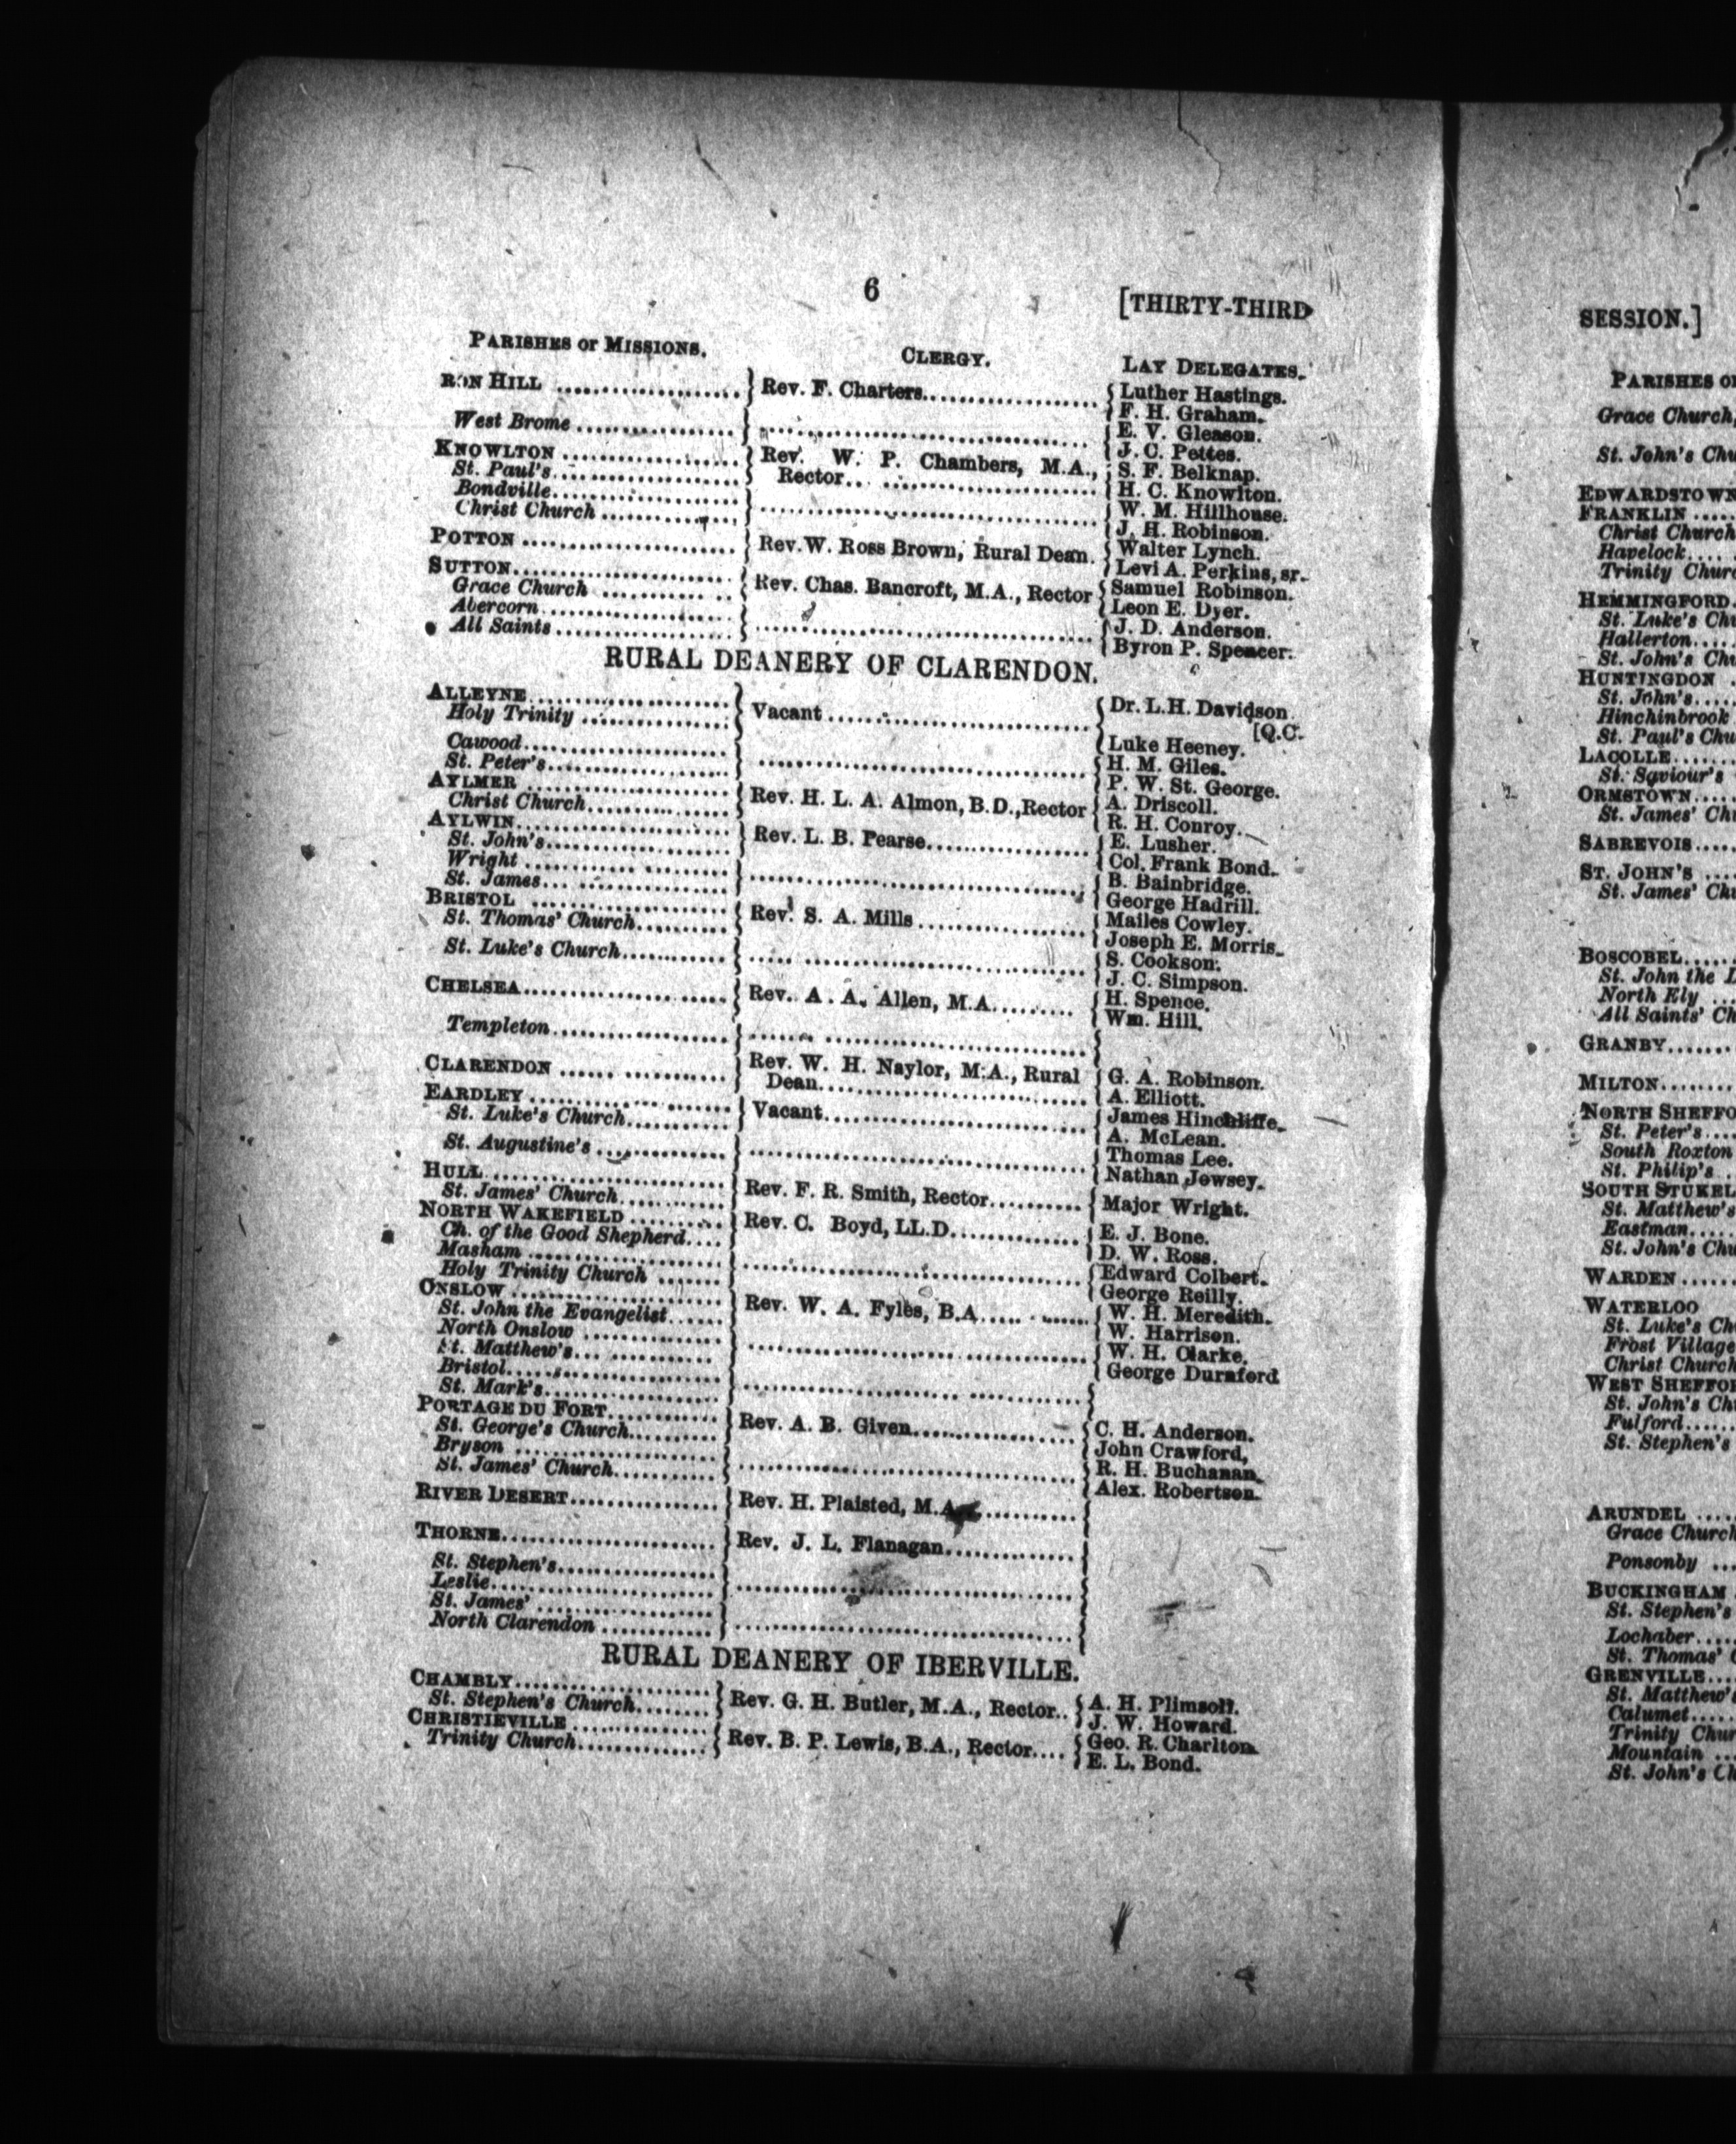 6
[THIRTY-THIRD
PARISHES or MISSIONS. CLERGY. LAY DELEGATES.
RON HILL .................... Rev. F. Charters.................... Luther Hastings.
F. H. Graham.
West Brome .................... E. V. Gleason.
J. C. Pettes.
KNOWLTON .................... Rev. W. P. Chambers, M.A., S. F. Belknap.
St. Paul's.................... Rector.. .................... H. C. Knowlton.
Bondville.................... W. M. Hillhouse.
Christ Church .................... J. H. Robinson.
POTTON .................... Rev. W. Ross Brown, Rural Dean. Walter Lynch.
Levi A. Perkins, sr.
SUTTON.................... Rev. Chas. Bancroft, M.A., Rector Samuel Robinson.
Grace Church .................... Leon E. Dyer.
Abercorn.................... J. D. Anderson.
All Saints.................... Byron P. Spencer.
RURAL DEANERY OF CLARENDON.
ALLEYNE.................... Vacant.................... Dr. L.H. Davidson
Holy Trinity .................... [Q.C.
Luke Heeney.
Cawood.................... H. M. Giles.
St. Peter's.................... P. W. St. George.
AYLMER .................... Rev. H. L. A. Almon, B.D., Rector A. Driscoll.
Christ Church.................... R. H. Conroy.
AYLWIN.................... Rev. L. B. Pearse.................... E. Lusher.
St. John's.................... Col. Frank Bond.
Wright .................... B. Bainbridge.
St. James.................... George Hadrill.
BRISTOL .................... Rev. S. A. Mills .................... Mailes Cowley.
St. Thomas' Church.................... Joseph E. Morris.
St. Luke's Church.................... S. Cookson.
J. C. Simpson.
CHELSEA.................... Rev. A. A. Allen, M.A......... H. Spence.
Wm. Hill.
Templeton....................
CLARENDON .................... Rev. W. H. Naylor, M.A., Rural G. A. Robinson.
Dean.................... A. Elliott.
EARDLEY .................... Vacant.................... James Hinchliffe.
St. Luke's Church.................... A. McLean.
St. Augustine's .................... Thomas Lee.
Nathan Jowsey.
HULL.................... Rev. F. R. Smith, Rector.......... Major Wright.
St. James' Church....................
NORTH WAKEFIELD .......... Rev. C. Boyd, LL.D.............. E. J. Bone.
Ch. of the Good Shepherd.... D. W. Ross.
Masham .................... Edward Colbert.
Holy Trinity Church ....... George Reilly.
ONSLOW .................... Rev. W. A. Fyles, B.A..... ....... W. H. Meredith.
St. John the Evangelist...... W. Harrison.
North Onslow .............. W. H. Clarke.
St. Matthew's... ............ George Durnford
Bristol....................
St. Mark's....................
PORTAGE DU FORT............ Rev. A. B. Given.................... C. H. Anderson.
St. George's Church.......... John Crawford,
Bryson .................... R. H. Buchanan.
St. James' Church............ Alex. Robertson.
RIVER DESERT................ Rev. H. Plaisted, M.A..............
THORNE.................... Rev. J. L. Flanagan..............
St. Stephen's....................
Leslie....................
St. James' ....................
North Clarendon ............
RURAL DEANERY OF IBERVILLE.
CHAMBLY.................... Rev. G. H. Butler, M.A., Rector.. A. H. Plimsoll.
St. Stephen's Church........ J. W. Howard.
CHRISTIEVILLE .............. Rev. B. P. Lewis, B.A., Rector.... Geo. R. Charlton.
Trinity Church.............. E. L. Bond.
SESSION.]
PARISHES
Grace Church,
St. John's
EDWARDSTOWN
FRANKLIN ....
Christ Church
Havelock....
Trinity
HEMMINGFORD.
St. Luke's
Hallerton....
St. John's
HUNTINGDON .
St. John's....
Hinchinbrook
St. Paul's
LACOLLE......
St. Saviour's
ORMSTOWN....
St. James'
SABREVOIS.....
ST. JOHN'S ....
St. James'
BOSCOBEL.....
St. John the
North Ely ...
All Saints'
GRANBY......
MILTON.......
NORTH
St. Peter's ...
South Roxton
St. Philip's ..
SOUTH
St. Matthew's
Eastman.....
St. John's
WARDEN .....
WATERLOO
St. Luke's
Frost Village
Christ Church
WEST
St. John's
Fulford......
St. Stephen's
ARUNDEL ....
Grace Church
Ponsonby ...
BUCKINGHAM
St. Stephen's
Lochaber....
St. Thomas'
GRENVILLE...
St. Matthew's
Calumet.....
Trinity
Mountain ...
St. John's